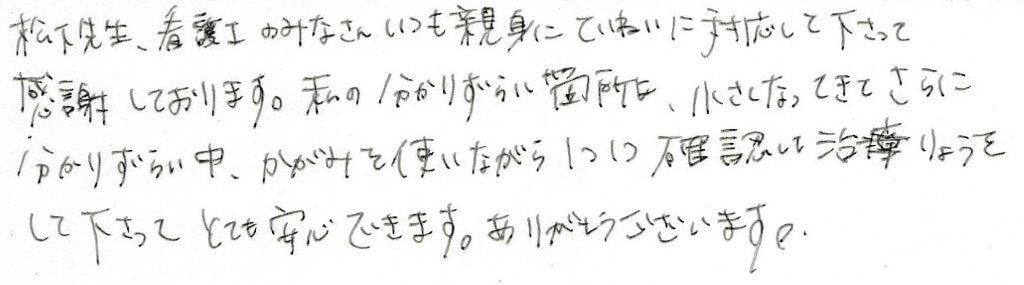 松下先生、看護士のみなさんいつも親身にていねいに対応して下さって
感謝しております。私の分かりずらい箇所は、小さくなってきてさらに
分かりずらい中、かがみを使いながら1つ1つ確認して治療りょうを
して下さってとても安心できます。ありがとうございます。